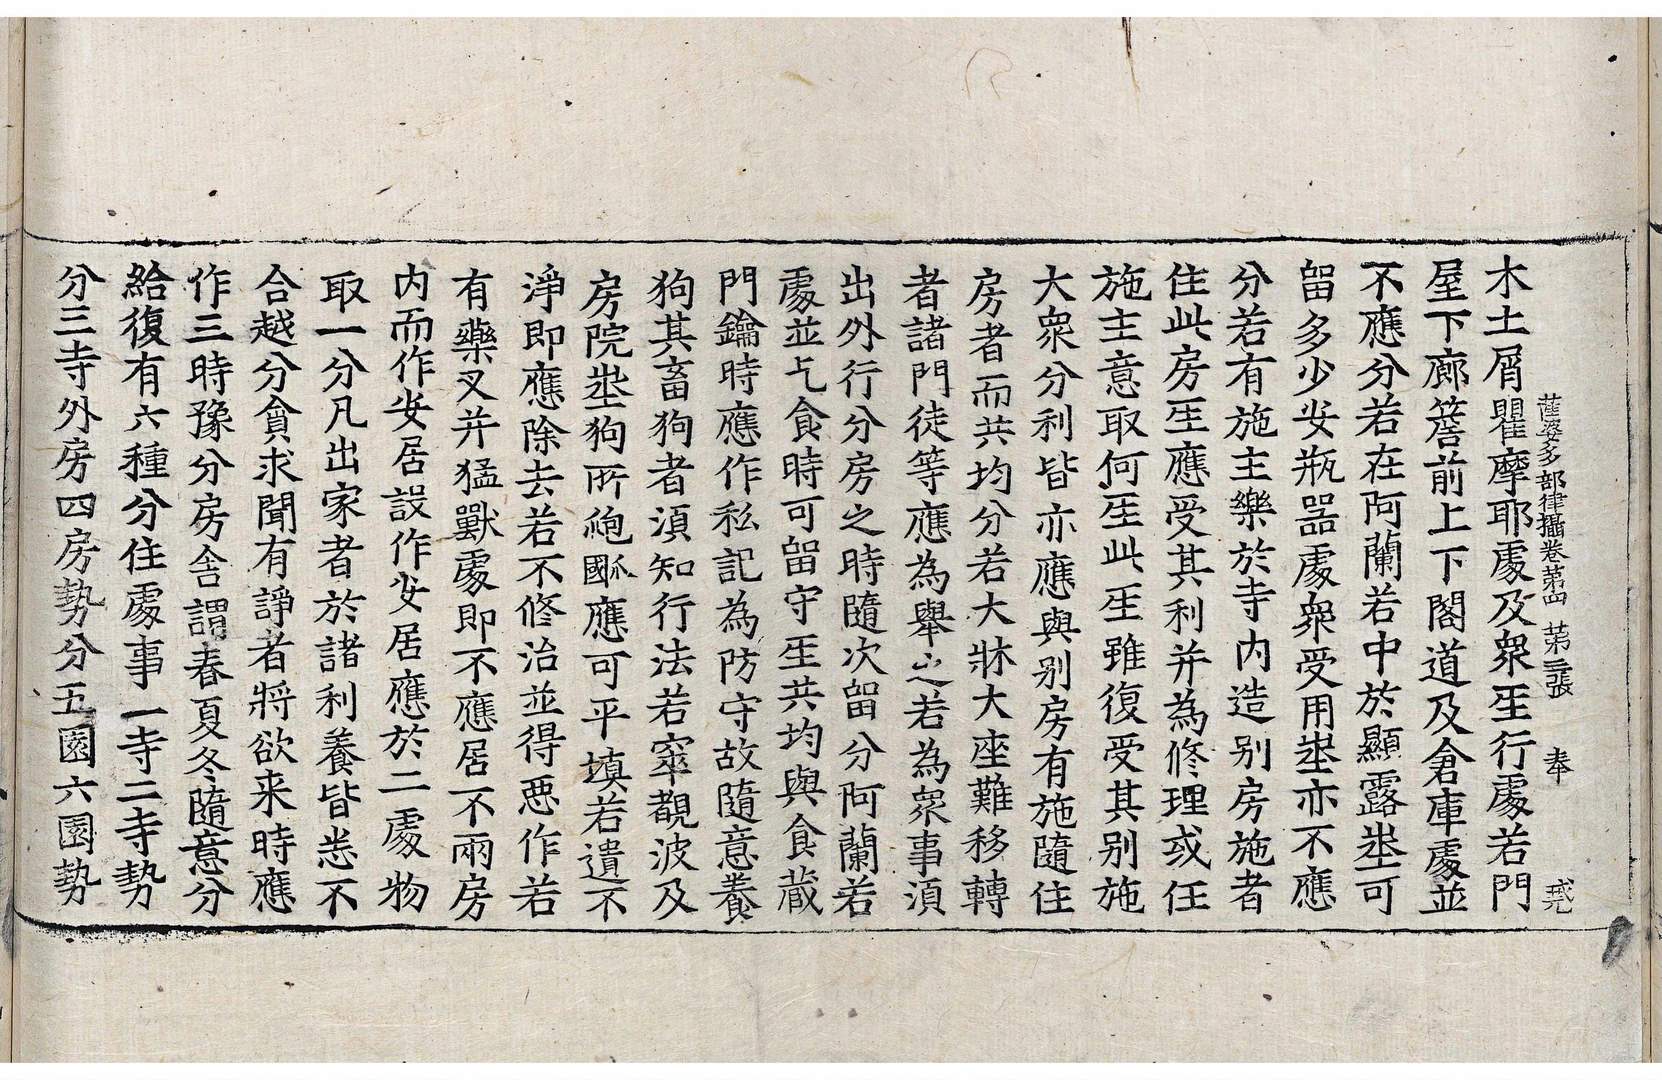 薩婆多部律攝卷第四 第三張 奉 戒凞
木土屑瞿摩耶處及眾𤯔行處若門
屋下廊簷前上下閣道及倉庫處並
不應分若在阿蘭若中於顯露𡋲可
留多少安瓶器處眾受用𡋲亦不應
分若有施主樂於寺内造别房施者
住此房𤯔應受其利并為修理或任
施主意取何𤯔此𤯔雖復受其别施
大眾分利皆亦應與别房有施隨住
房者而共均分若大牀大座難移轉
者諸門徒等應為舉之若為眾事湏
出外行分房之時隨次留分阿蘭若
處並乞食時可留守𤯔共均與食蔵
門鑰時應作私記為防守故隨意養
狗其畜狗者湏知行法若窣覩波及
房院𡋲狗所䶌應可平填若遺不
淨即應除去若不修治並得惡作若
有藥叉并猛獸處即不應居不兩房
内而作安居設作安居應於二處物
取一分凡出家者於諸利養皆悉不
合越分貪求聞有諍者將欲来時應
作三時豫分房舎謂春夏冬隨意分
給復有六種分住處事一寺二寺㔟
分三寺外房四房㔟分五園六園㔟